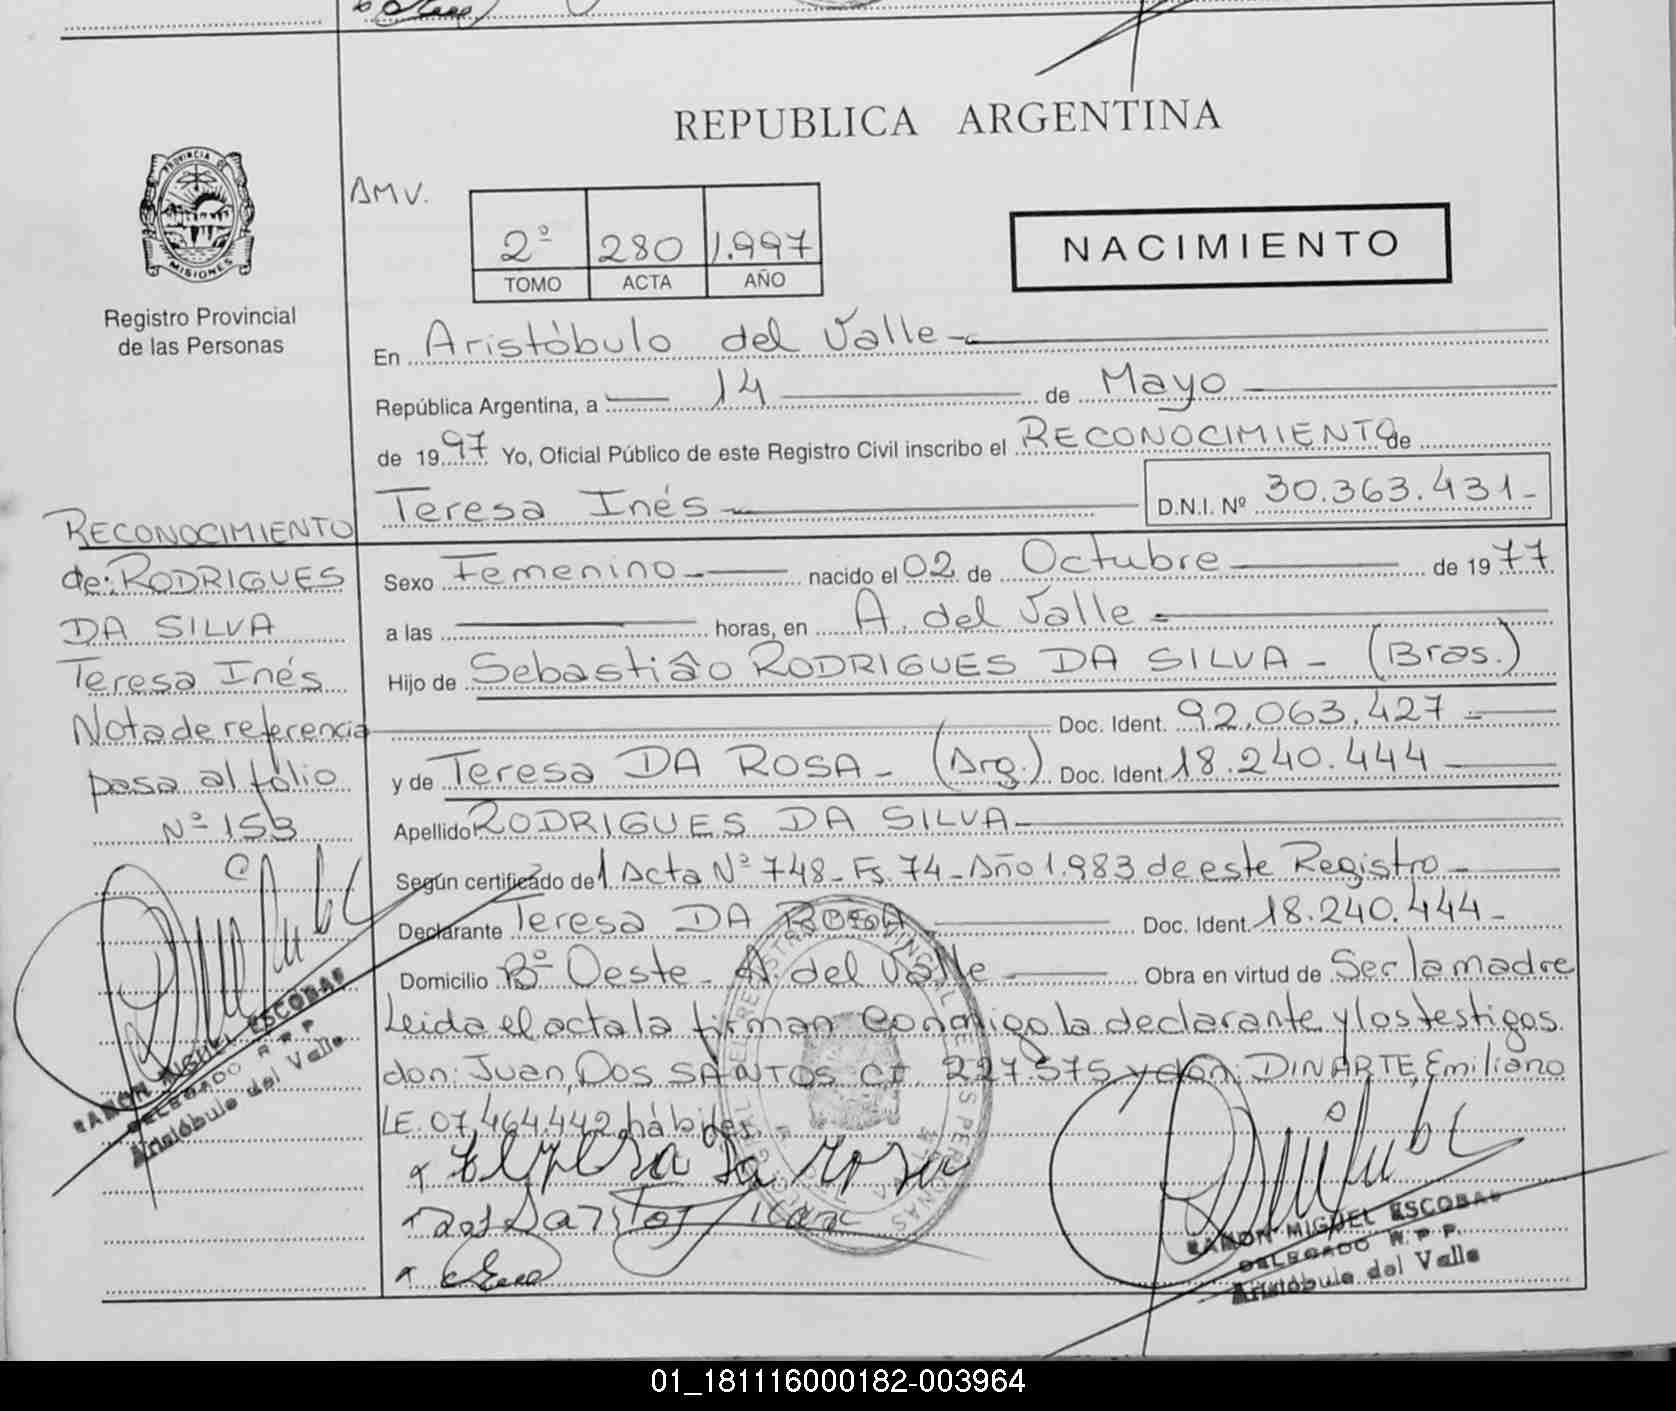 REPUBLICA ARGENTINA
PROVINCIA DE
MISIONES
Registro Provincial
de las Personas
AMV.
2º 280 1.997
TOMO ACTA AÑO
NACIMIENTO
En Aristóbulo del Valle
República Argentina, a 14 de Mayo
de 1997 Yo, Oficial Público de este Registro Civil inscribo el RECONOCIMIENTO de
Teresa Inés D.N.I. Nº 30.363.431-
RECONOCIMIENTO
de: RODRIGUES
DA SILVA
Teresa Inés
Nota de referencia
pasa al folio
Nº 153
RAMON MIGUEL ESCOBAR
DELEGADO R P P
Aristóbulo del Valle
Sexo Femenino nacido el 02 de Octubre de 1977
a las horas, en A. del Valle
Hijo de Sebastiâo RODRIGUES DA SILVA - (Bras.)
Doc. Ident. 92.063.427
y de Teresa DA ROSA - (Arg.) Doc. Ident. 18.240.444
Apellido RODRIGUES DA SILVA
Según certificado de 1 Acta Nº 748 - Fs. 74 - Año 1.983 de este Registro
Declarante Teresa DA ROSA Doc. Ident. 18.240.444-
Domicilio Bº Oeste - A. del Valle Obra en virtud de Ser la madre
Leida el acta la firman conmigo la declarante y los testigos
don: Juan, DOS SANTOS CI. 227.575 y don: DINARTE, Emiliano
LE. 07.464.442 hábiles.
Teresa da rosa
dos Santos Juan
RAMON MIGUEL ESCOBAR
DELEGADO R. P. P.
Aristóbulo del Valle
01_181116000182-003964